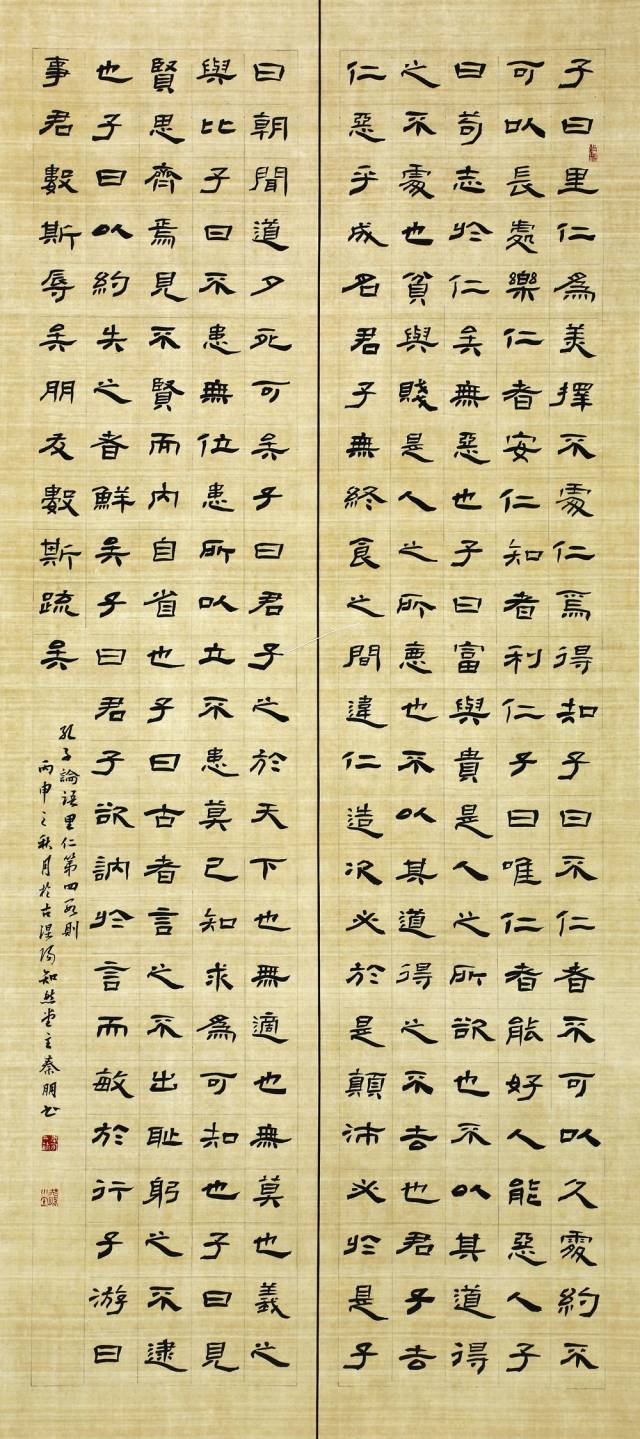 子曰里仁為美擇不處仁焉得知子曰不仁者不可以久處約不
可以長處樂仁者安仁知者利仁子曰唯仁者能好人能惡人子
曰苟志於仁矣無惡也子曰富與貴是人之所欲也不以其道得
之不處也貧與賤是人之所惡也不以其道得之不去也君子去
仁惡乎成名君子無終食之間違仁造次必於是顛沛必於是子
曰朝聞道夕死可矣子曰君子之於天下也無適也無莫也義之
與比子曰不患無位患所以立不患莫己知求為可知也子曰見
賢思齊焉見不賢而內自省也子曰古者言之不出耻躬之不逮
也子曰以約失之者鮮矣子曰君子欲訥於言而敏於行子游曰
事君數斯辱矣朋友數斯疏矣
孔子論語里仁第四則
丙申之秋月於古陽知然堂主秦朋書